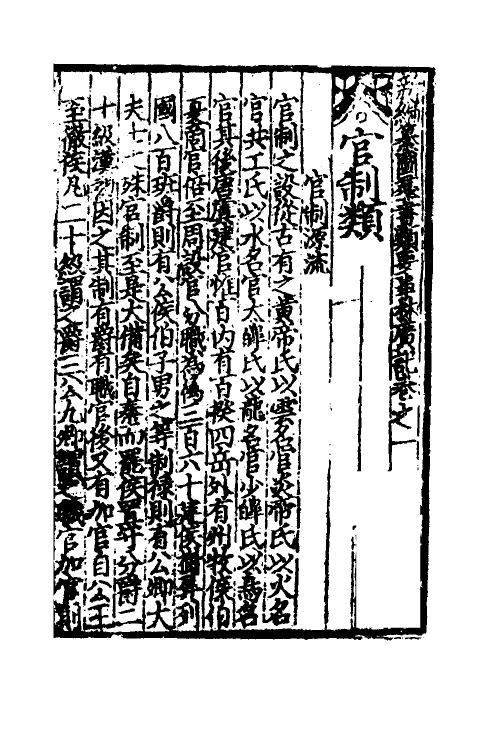 新編纂圖增類群書類要事林廣記卷之一
官制類
官制源流
官制之設從古有之黃帝氏以雲名官炎帝氏以火名
官共工氏以水名官太皞氏以龍名官少皞氏以鳥名
官其後唐虞建官惟百内有百揆四岳外有州牧侯伯
夏商官倍至周設官分職為僞三百六十諸侯備昇列
國八百班爵則有公侯伯子男之等制祿則有公卿大
夫士之殊官制至是大備矣自秦而罷侯置守分爵二
十級漢因之其制有爵有職官後又有加官自公王
至徹侯凡二十級謂之爵三公九卿謂之職官加官則